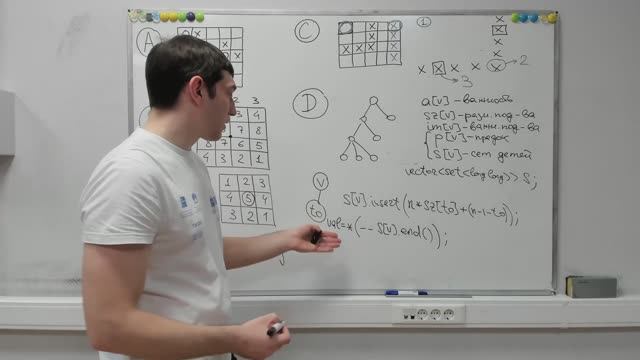 A
C
D
1
x
x
x
x
x x x x x
2
3
2 3
7 8
8 7 6 5
4 3 2 1
1 2 3
4 5 4
3 2 1
a[v] - важность
sz[v] - разм. под-ва
im[v] - важн. под-ва
p[v] - предок
S[v] - сет детей
vector<set<long long>> S;
v
to
S[v].insert(n*sz[to]+(n-1-to));
val=*(--S[v].end());